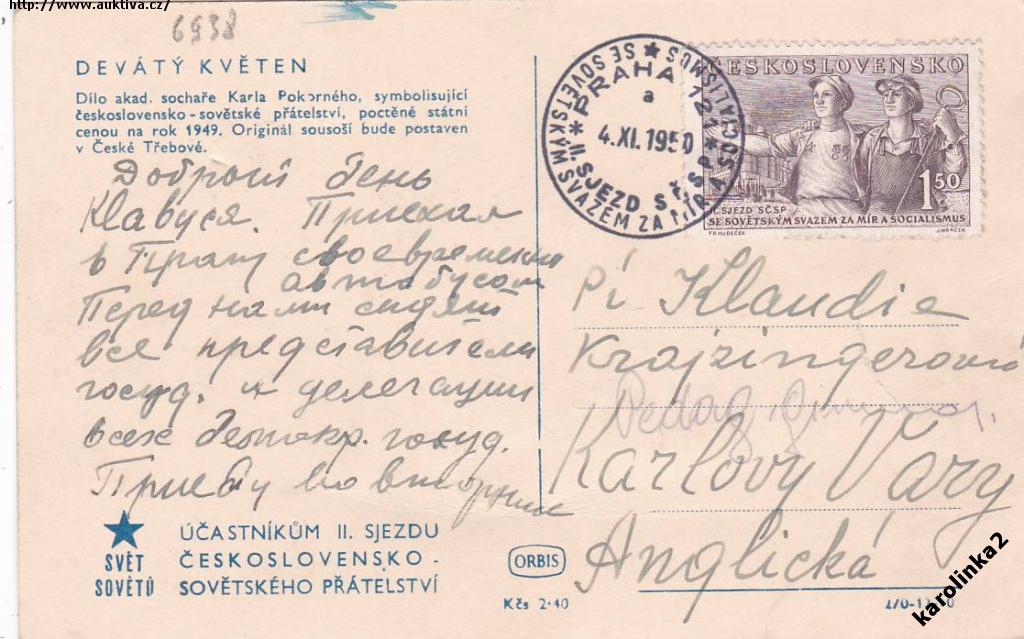 http://www.auktiva.cz/
6938
DEVÁTÝ KVĚTEN
Dílo akad. sochaře Karla Pokorného, symbolisující
československo-sovětské přátelství, poctěné státní
cenou na rok 1949. Originál sousoší bude postaven
v České Třebové.
Добрый день
Клавуся. Приехал
в Прагу своевременно
автобусом
Перед нами сидят
все представители
госуд. и делегации
всех демокр. госуд.
Приеду во вторник
SVĚT
SOVĚTŮ
ÚČASTNÍKŮM II. SJEZDU
ČESKOSLOVENSKO-
SOVĚTSKÉHO PŘÁTELSTVÍ
ORBIS
Kčs 2·40
PRAHA 121
a
4.XI.1950
II. SJEZD SČSP
SE SOVĚTSKÝM SVAZEM ZA MÍR A SOCIALISMUS
ČESKOSLOVENSKO
1.50
II. SJEZD SČSP
SE SOVĚTSKÝM SVAZEM ZA MÍR A SOCIALISMUS
FR. HUDEČEK
J. MRÁČEK
Pí Klaudie
Krajzingerová
Karlovy Vary
Anglická
karolinka2